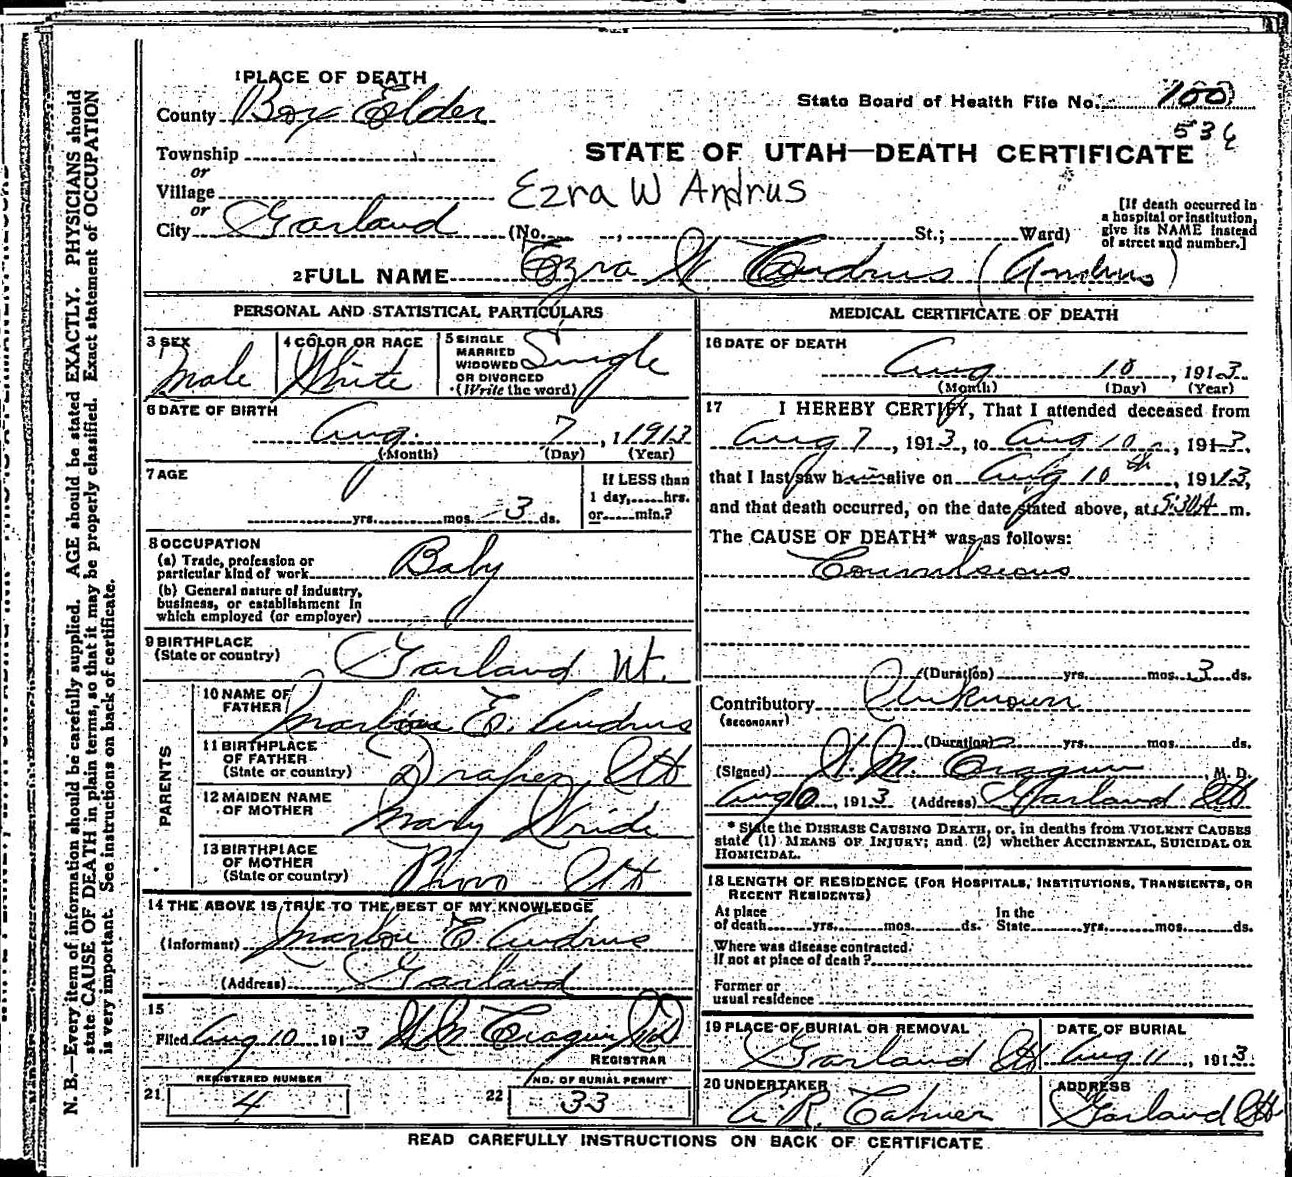 1 PLACE OF DEATH
County Box Elder
State Board of Health File No. 100
536
Township
or
Village
or
City Garland
STATE OF UTAH—DEATH CERTIFICATE
Ezra W Andrus
(No. , St.; Ward)
[If death occurred in
a hospital or institution,
give its NAME instead
of street and number.]
2 FULL NAME Ezra W Andrus (Andrus)
PERSONAL AND STATISTICAL PARTICULARS
3 SEX
Male
4 COLOR OR RACE
White
5 SINGLE
MARRIED
WIDOWED
OR DIVORCED
(Write the word)
Single
6 DATE OF BIRTH
Aug. 7, 1913
(Month) (Day) (Year)
7 AGE
yrs. mos. 3 ds.
If LESS than
1 day, hrs.
or min.?
8 OCCUPATION
(a) Trade, profession or
particular kind of work Baby
(b) General nature of industry,
business, or establishment in
which employed (or employer)
9 BIRTHPLACE
(State or country) Garland Ut.
PARENTS
10 NAME OF
FATHER E. Andrus
11 BIRTHPLACE
OF FATHER
(State or country) Draper Ut
12 MAIDEN NAME
OF MOTHER Mary Wride
13 BIRTHPLACE
OF MOTHER
(State or country) Provo Ut
14 THE ABOVE IS TRUE TO THE BEST OF MY KNOWLEDGE
(Informant) E Andrus
(Address) Garland
15
Filed Aug 10 1913 W M Cragun MD
REGISTRAR
21 REGISTERED NUMBER
4
22 NO. OF BURIAL PERMIT
33
MEDICAL CERTIFICATE OF DEATH
16 DATE OF DEATH
Aug 10, 1913
(Month) (Day) (Year)
17 I HEREBY CERTIFY, That I attended deceased from
Aug 7, 1913, to Aug 10, 1913,
that I last saw him alive on Aug 10th, 1913,
and that death occurred, on the date stated above, at 5:30A m.
The CAUSE OF DEATH* was as follows:
Convulsions
(Duration) yrs. mos. 3 ds.
Contributory Unknown
(SECONDARY)
(Duration) yrs. mos. ds.
(Signed) W. M. Cragun, M. D.
Aug 10, 1913 (Address) Garland Ut
* State the DISEASE CAUSING DEATH, or, in deaths from VIOLENT CAUSES
state (1) MEANS OF INJURY; and (2) whether ACCIDENTAL, SUICIDAL OR
HOMICIDAL.
18 LENGTH OF RESIDENCE (FOR HOSPITALS, INSTITUTIONS, TRANSIENTS, OR
RECENT RESIDENTS)
At place
of death yrs. mos. ds.
In the
State yrs. mos. ds.
Where was disease contracted.
If not at place of death?
Former or
usual residence
19 PLACE OF BURIAL OR REMOVAL
Garland Ut
DATE OF BURIAL
Aug 11, 1913
20 UNDERTAKER
A. R.
ADDRESS
Garland Ut
READ CAREFULLY INSTRUCTIONS ON BACK OF CERTIFICATE
N. B.—Every item of information should be carefully supplied. AGE should be stated EXACTLY. PHYSICIANS should
state CAUSE OF DEATH in plain terms, so that it may be properly classified. Exact statement of OCCUPATION
is very important. See instructions on back of certificate.